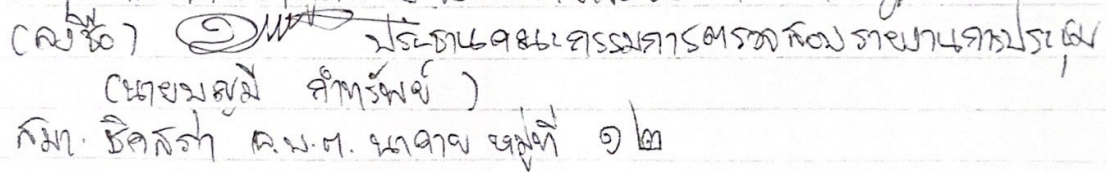 (ลงชื่อ) ประธานคณะกรรมการตรวจสอบรายงานการประชุม
(นายบุญมี คำทรัพย์)
สมา. ชิกสภา อ.บ.ต. นาคาย หมู่ที่ ๑๒